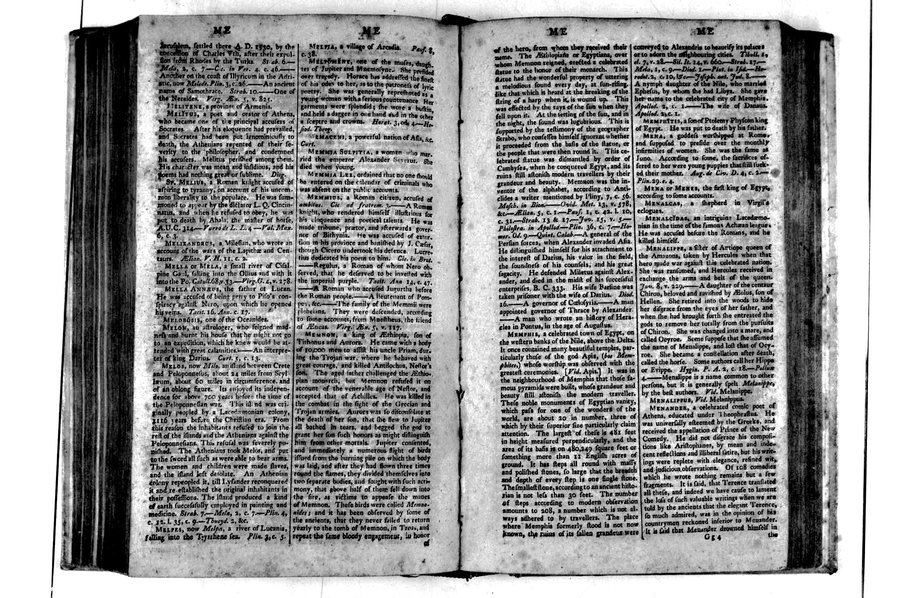 ME
ME
Jerusalem, settled there A. D. 1530, by the
concession of Charles Vth, after their expul-
sion from Rhodes by the Turks. Strab. 6.—
Mela, 2, c. 7.—Cic. in Ver. 4, c. 46.—
Another on the coast of Illyricum in the Adri-
atic, now Melede. Plin. 3, c. 26.—An ancient
name of Samothrace. Strab. 10.—One of
the Nereides. Virg. Æn. 5, v. 825.
MELITENE, a province of Armenia.
MELITUS, a poet and orator of Athens,
who became one of the principal accusers of
Socrates. After his eloquence had prevailed,
and Socrates had been put ignominiously to
death, the Athenians repented of their se-
verity to the philosopher, and condemned
his accusers. Melitus perished among them.
His character was mean and insidious, and his
poems had nothing great or sublime. Diog.
SP. MELIUS, a Roman knight accused of
aspiring to tyranny, on account of his uncom-
mon liberality to the populace. He was sum-
moned to appear by the dictator L. Q. Cincin-
natus, and when he refused to obey, he was
put to death by Ahala, the master of horse,
A.U.C. 314.—Varro de L. L. 4.—Val. Max.
6, c. 3.
MELIXANDRUS, a Milesian, who wrote an
account of the wars of the Lapithæ and Cen-
taurs. Ælian. V. H. 11, c. 2.
MELLA or MELA, a small river of Cisal-
pine Gaul, falling into the Ollius and with it
into the Po. Catull. 68, v. 33.—Virg. G. 4, v. 278.
MELLA ANNÆUS, the father of Lucan.
He was accused of being privy to Piso's con-
spiracy against Nero, upon which he opened
his veins. Tacit. 16, Ann. c. 17.
MELOBOSIS, one of the Oceanides.
MELON, an astrologer, who feigned mad-
ness and burnt his house that he might not go
to an expedition, which he knew would be at-
tended with great calamities.—An interpre-
ter of king Darius. Curt. 5, c. 13.
MELOS, now Milo, an island between Crete
and Peloponnesus, about 24 miles from Scyl-
læum, about 60 miles in circumference, and
of an oblong figure. It enjoyed its indepen-
dence for above 700 years before the time of
the Peloponnesian war. This island was ori-
ginally peopled by a Lacedæmonian colony,
1116 years before the Christian era. From
this reason the inhabitants refused to join the
rest of the islands and the Athenians against the
Peloponnesians. This refusal was severely pu-
nished. The Athenians took Melos, and put
to the sword all such as were able to bear arms.
The women and children were made slaves,
and the island left desolate. An Athenian
colony repeopled it, till Lysander reconquered
it and re-established the original inhabitants in
their possessions. The island produced a kind
of earth successfully employed in painting and
medicine. Strab. 7.—Mela, 2, c. 7.—Plin. 4,
c. 12. l. 35, c. 9.—Thucyd. 2, &c.
MELPES, now Melpa, a river of Lucania,
falling into the Tyrrhene sea. Plin. 3, c. 5.
MELPIA, a village of Arcadia. Paus. 8,
c. 38.
MELPOMENE, one of the muses, daugh-
ter of Jupiter and Mnemosyne. She presided
over tragedy. Horace has addressed the finest
of his odes to her, as to the patroness of lyric
poetry. She was generally represented as a
young woman with a serious countenance. Her
garments were splendid; she wore a buskin,
and held a dagger in one hand and in the other
a sceptre and crowns. Horat. 3, od. 4.—He-
siod. Theog.
MEMACENI, a powerful nation of Asia, &c.
Curt.
MEMMIA SULPITIA, a woman who mar-
ried the emperor Alexander Severus. She
died when young.
MEMMIA LEX, ordained that no one should
be entered on the calendar of criminals who
was absent on the public accounts.
MEMMIUS, a Roman citizen, accused of
ambitus. Cic. ad fratrem. 3.—A Roman
knight, who rendered himself illustrious for
his eloquence and poetical talents. He was
made tribune, prætor, and afterwards gover-
nor of Bithynia. He was accused of extor-
tion in his province and banished by J. Cæsar,
though Cicero undertook his defence. Lucre-
tius dedicated his poem to him. Cic. in Brut.
—Regulus, a Roman of whom Nero ob-
served, that he deserved to be invested with
the imperial purple. Tacit. Ann. 14, c. 47.
—A Roman who accused Jugurtha before
the Roman people.—A lieutenant of Pom-
pey, &c.—The family of the Memmii were
plebeians. They were descended, according
to some accounts, from Mnestheus, the friend
of Æneas. Virg. Æn. 5, v. 117.
MEMNON, a king of Æthiopia, son of
Tithonus and Aurora. He came with a body
of 10,000 men to assist his uncle Priam, dur-
ing the Trojan war, where he behaved with
great courage, and killed Antilochus, Nestor's
son. The aged father challenged the Æthio-
pian monarch, but Memnon refused it on
account of the venerable age of Nestor, and
accepted that of Achilles. He was killed in
the combat in the sight of the Grecian and
Trojan armies. Aurora was so disconsolate at
the death of her son, that she flew to Jupiter
all bathed in tears, and begged the god to
grant her son such honors as might distinguish
him from other mortals. Jupiter consented,
and immediately a numerous flight of birds
issued from the burning pile on which the body
was laid, and after they had flown three times
round the flames, they divided themselves into
two separate bodies, and fought with such acri-
mony, that above half of them fell down into
the fire, as victims to appease the manes
of Memnon. These birds were called Memno-
nides; and it has been observed by some of
the ancients, that they never failed to return
yearly to the tomb of Memnon, in Troas, and
repeat the same bloody engagement, in honor
of
ME
ME
of the hero, from whom they received their
name. The Æthiopians or Egyptians, over
whom Memnon reigned, erected a celebrated
statue to the honor of their monarch. This
statue had the wonderful property of uttering
a melodious sound every day, at sun-rising,
like that which is heard at the breaking of the
string of a harp when it is wound up. This
was effected by the rays of the sun when they
fell upon it. At the setting of the sun, and in
the night, the sound was lugubrious. This is
supported by the testimony of the geographer
Strabo, who confesses himself ignorant whether
it proceeded from the basis of the statue, or
the people that were then round it. This ce-
lebrated statue was dismantled by order of
Cambyses, when he conquered Egypt, and its
ruins still astonish modern travellers by their
grandeur and beauty. Memnon was the in-
ventor of the alphabet, according to Anti-
clides a writer mentioned by Pliny, 7, c. 56.
Mosch. in Bion.—Ovid. Met. 13, v. 578,
&c.—Ælian. 5, c. 1.—Paus. 1, c. 42. l. 10,
c. 31.—Strab. 13 & 17.—Juv. 15, v. 5.—
Philostra. in Apollod.—Plin. 36, c. 7.—Ho-
mer. Od. 9.—Quint. Calab.—A general of the
Persian forces, when Alexander invaded Asia.
He distinguished himself for his attachment to
the interest of Darius, his valor in the field,
the soundness of his counsels, and his great
sagacity. He defended Miletus against Alex-
ander, and died in the midst of his successful
enterprises, B. C. 333. His wife Barsine was
taken prisoner with the wife of Darius. Diod.
16.—A governor of Cœlosyria.—A man
appointed governor of Thrace by Alexander.
—A man who wrote an history of Hera-
clea in Pontus, in the age of Augustus.
MEMPHIS, a celebrated town of Egypt, on
the western banks of the Nile, above the Delta.
It once contained many beautiful temples, par-
ticularly those of the god Apis, (bos Mem-
phites) whose worship was observed with the
greatest ceremonies. [Vid. Apis.] It was in
the neighbourhood of Memphis that those fa-
mous pyramids were built, whose grandeur and
beauty still astonish the modern traveller.
These noble monuments of Egyptian vanity,
which pass for one of the wonders of the
world, are about 20 in number, three of
which by their superior size particularly claim
attention. The largest of these is 481 feet
in height measured perpendicularly, and the
area of its basis is on 480,249 square feet or
something more than 11 English acres of
ground. It has steps all round with massy
and polished stones, so large that the breadth
and depth of every step is one single stone.
The smallest stone, according to an ancient histo-
rian is not less than 30 feet. The number
of steps according to modern observation
amounts to 208, a number which is not al-
ways adhered to by travellers. The place
where Memphis formerly stood is not now
known, the ruins of its fallen grandeur were
conveyed to Alexandria to beautify its palaces
or to adorn the neighbouring cities. Tibull. 1,
el. 7, v. 28.—Sil. It. 14, v. 660.—Strab. 17.—
Mela, 1, c. 9.—Diod. 1.—Plut. in Isid.—He-
rodot. 2, c. 10, &c.—Joseph. ant. Jud. 8.—
A nymph daughter of the Nile, who married
Ephesus, by whom she had Libya. She gave
her name to the celebrated city of Memphis.
Apollod. 2, c. 1.—The wife of Danaus.
Apollod. 2, c. 1.
MEMPHITIS, a son of Ptolemy Physcon king
of Egypt. He was put to death by his father.
MENA, a goddess worshipped at Rome,
and supposed to preside over the monthly
infirmities of women. She was the same as
Juno. According to some, the sacrifices of-
fered to her were young puppies that still suck-
ed their mother. Aug. de Civ. D. 4, c. 2.—
Plin. 29, c. 4.
MENA or MENES, the first king of Egypt,
according to some accounts.
MENALCAS, a shepherd in Virgil's
eclogues.
MENALCIDAS, an intriguing Lacedæmo-
nian in the time of the famous Achæan league.
He was accused before the Romans, and he
killed himself.
MENALIPPE, a sister of Antiope queen of
the Amazons, taken by Hercules when that
hero made war against this celebrated nation.
She was ransomed, and Hercules received in
exchange the arms and belt of the queen.
Juv. 8, v. 229.—A daughter of the centaur
Chiron, beloved and ravished by Æolus, son of
Hellen. She retired into the woods to hide
her disgrace from the eyes of her father, and
when she had brought forth she entreated the
gods to remove her totally from the pursuits
of Chiron. She was changed into a mare, and
called Ocyroe. Some suppose that she assumed
the name of Menalippe, and lost that of Ocy-
roe. She became a constellation after death,
called the horse. Some authors call her Hippe
or Evippe. Hygin. P. A. 2, c. 18.—Pollux
4.—Menalippe is a name common to other
persons, but it is generally spelt Melanippe,
by the best authors. Vid. Melanippe.
MENALIPPUS, Vid. Melanippus.
MENANDER, a celebrated comic poet of
Athens, educated under Theophrastus. He
was universally esteemed by the Greeks, and
received the appellation of Prince of the New
Comedy. He did not disgrace his composi-
tions like Aristophanes, by mean and inde-
cent reflections and illiberal satire, but his writ-
ings were replete with elegance, refined wit,
and judicious observations. Of 108 comedies
which he wrote nothing remains but a few
fragments. It is said, that Terence translated
all these, and indeed we have cause to lament
the loss of such valuable writings when we are
told by the ancients that the elegant Terence,
so much admired, was in the opinion of his
countrymen reckoned inferior to Menander.
It is said that Menander drowned himself in
Gg 4
the